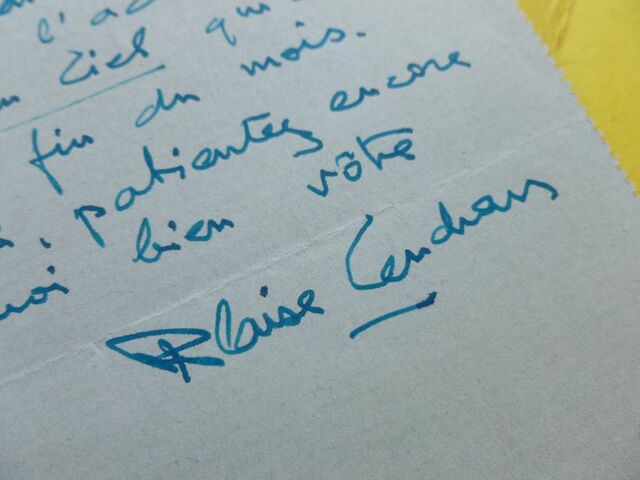 l'a
Ciel qui
fin du mois.
patientez encore
bien vôtre
Blaise Cendrars